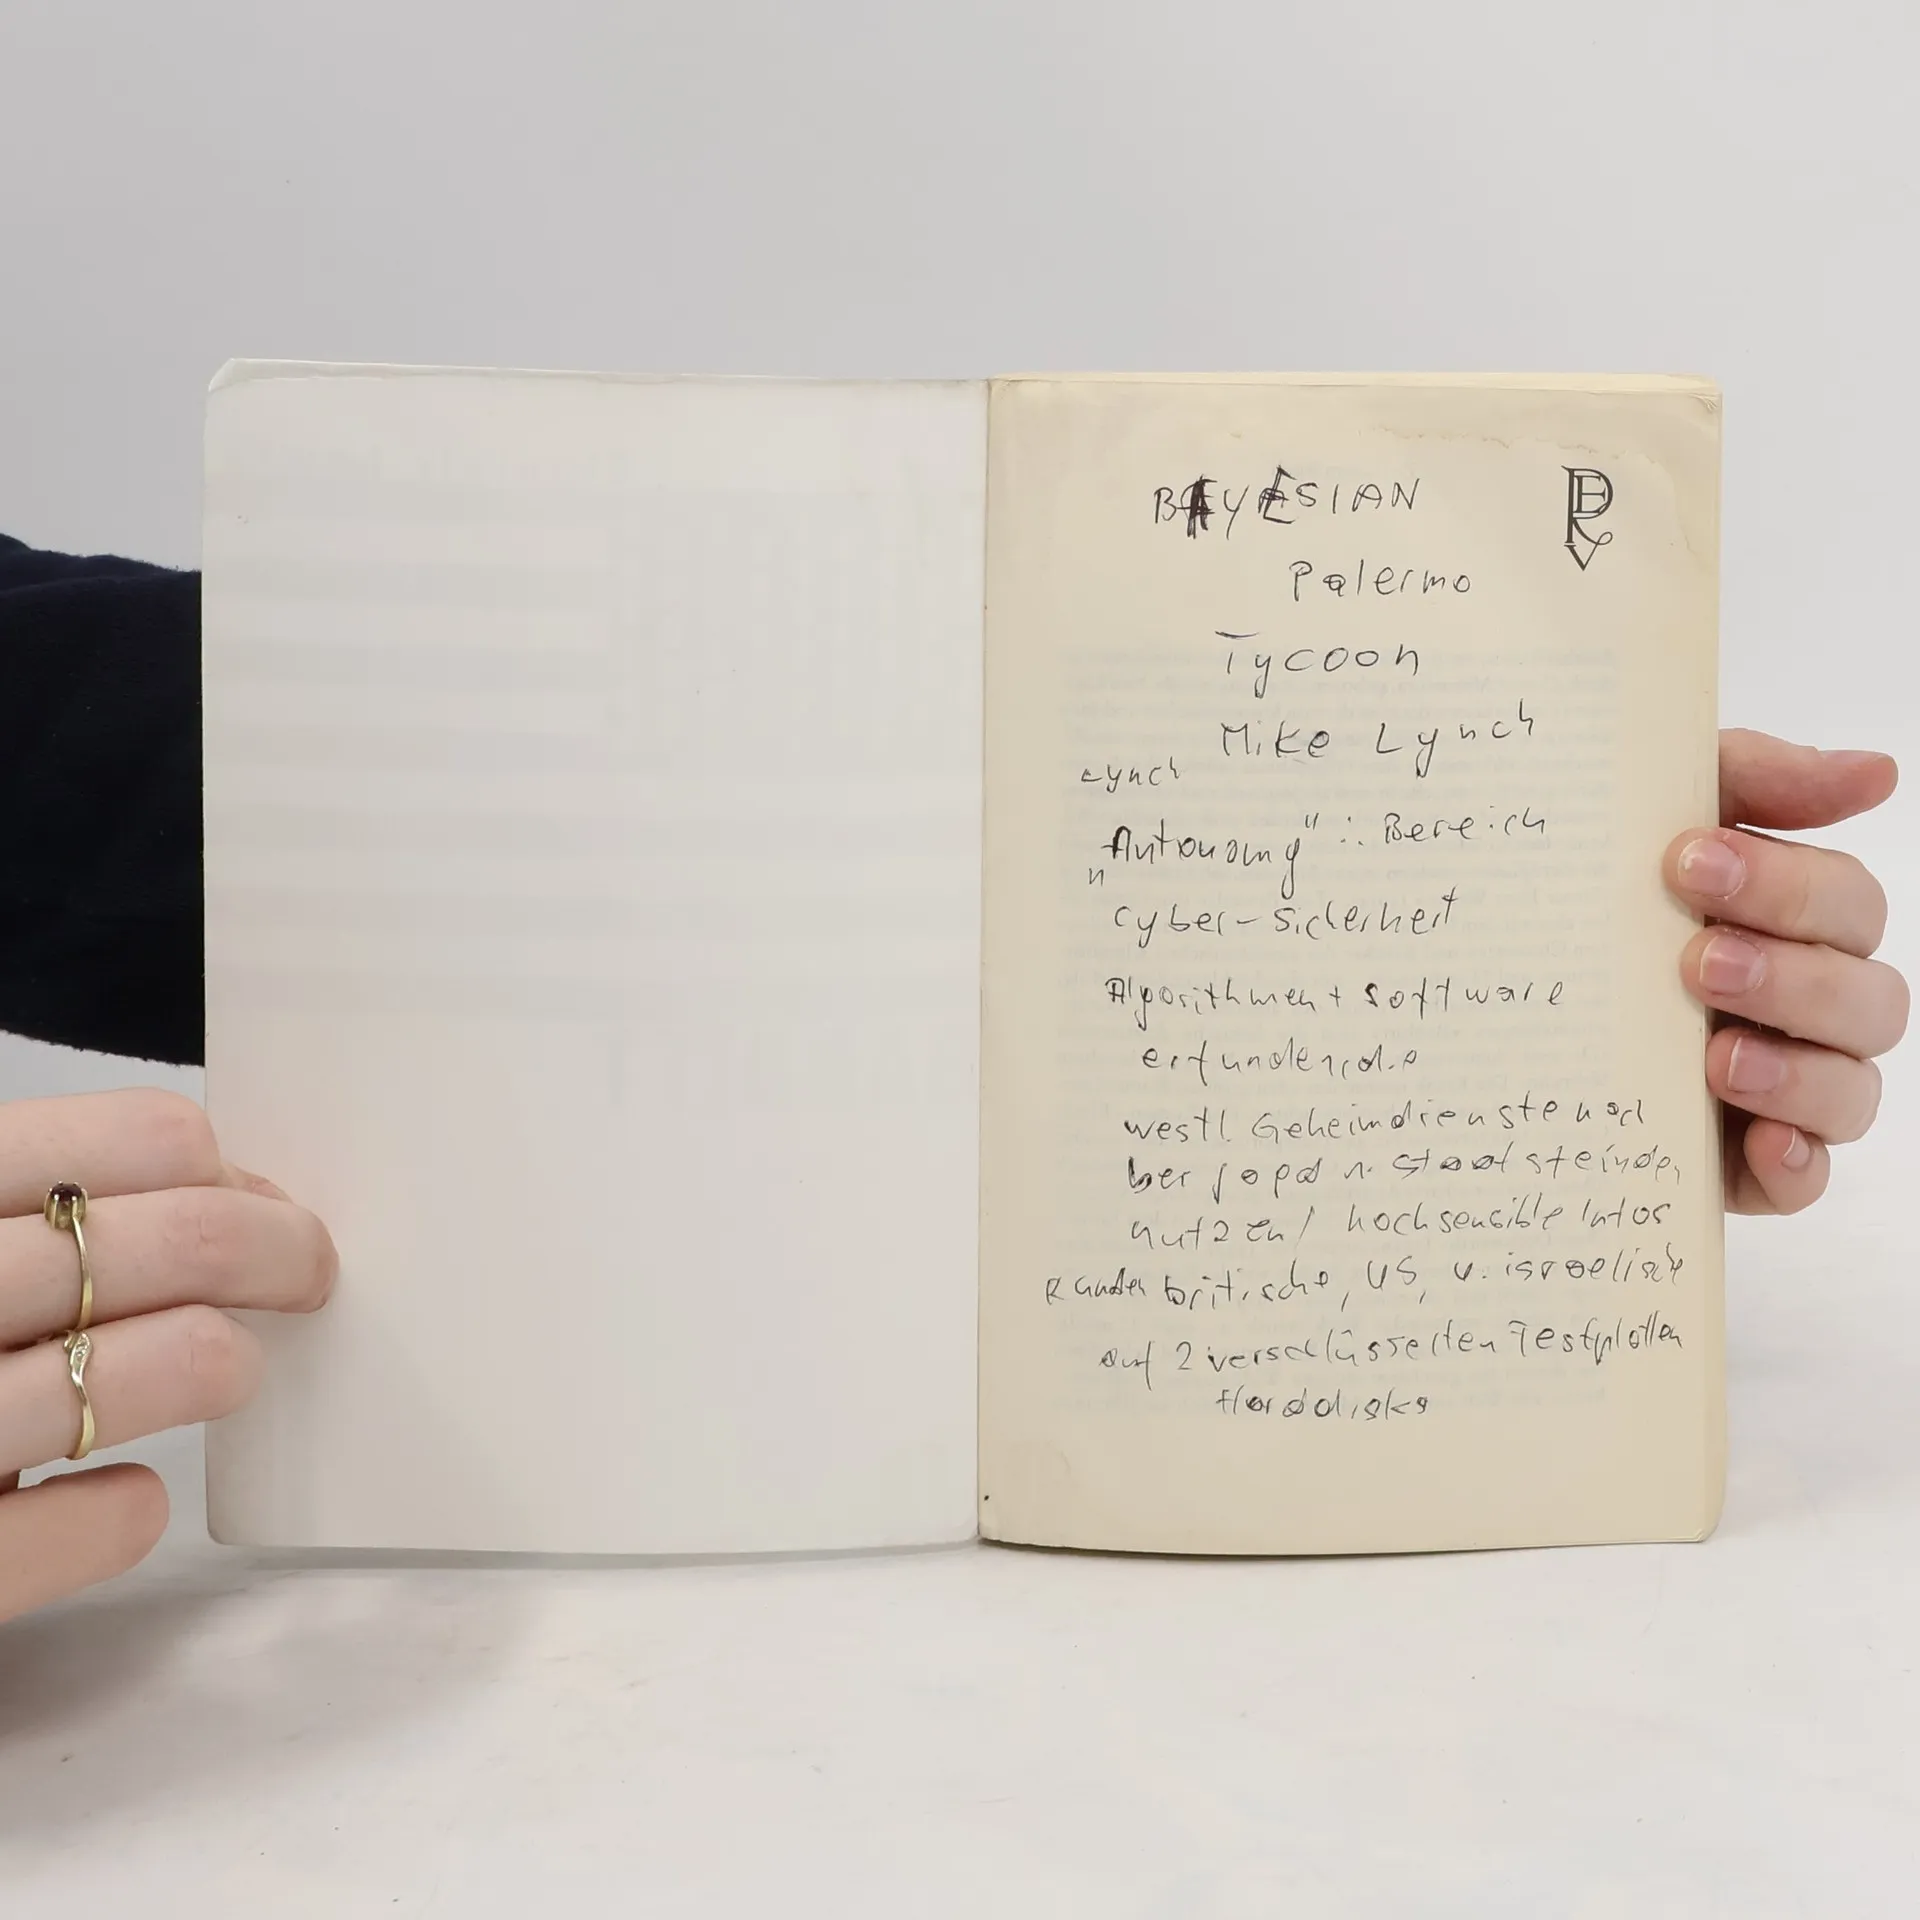 BAYESIAN
Palermo
Tycoon
Mike Lynch
Lynch
"Autonomy" : Bereich
Cyber-Sicherheit
Algorithmen + Software
erfunden, die
westl. Geheimdienste nach
Staatsfeinden
nutzen / hochsensible Infos
Kunden britische, US, u. israelische
auf 2 verschlüsselten Festplatten
Harddisks